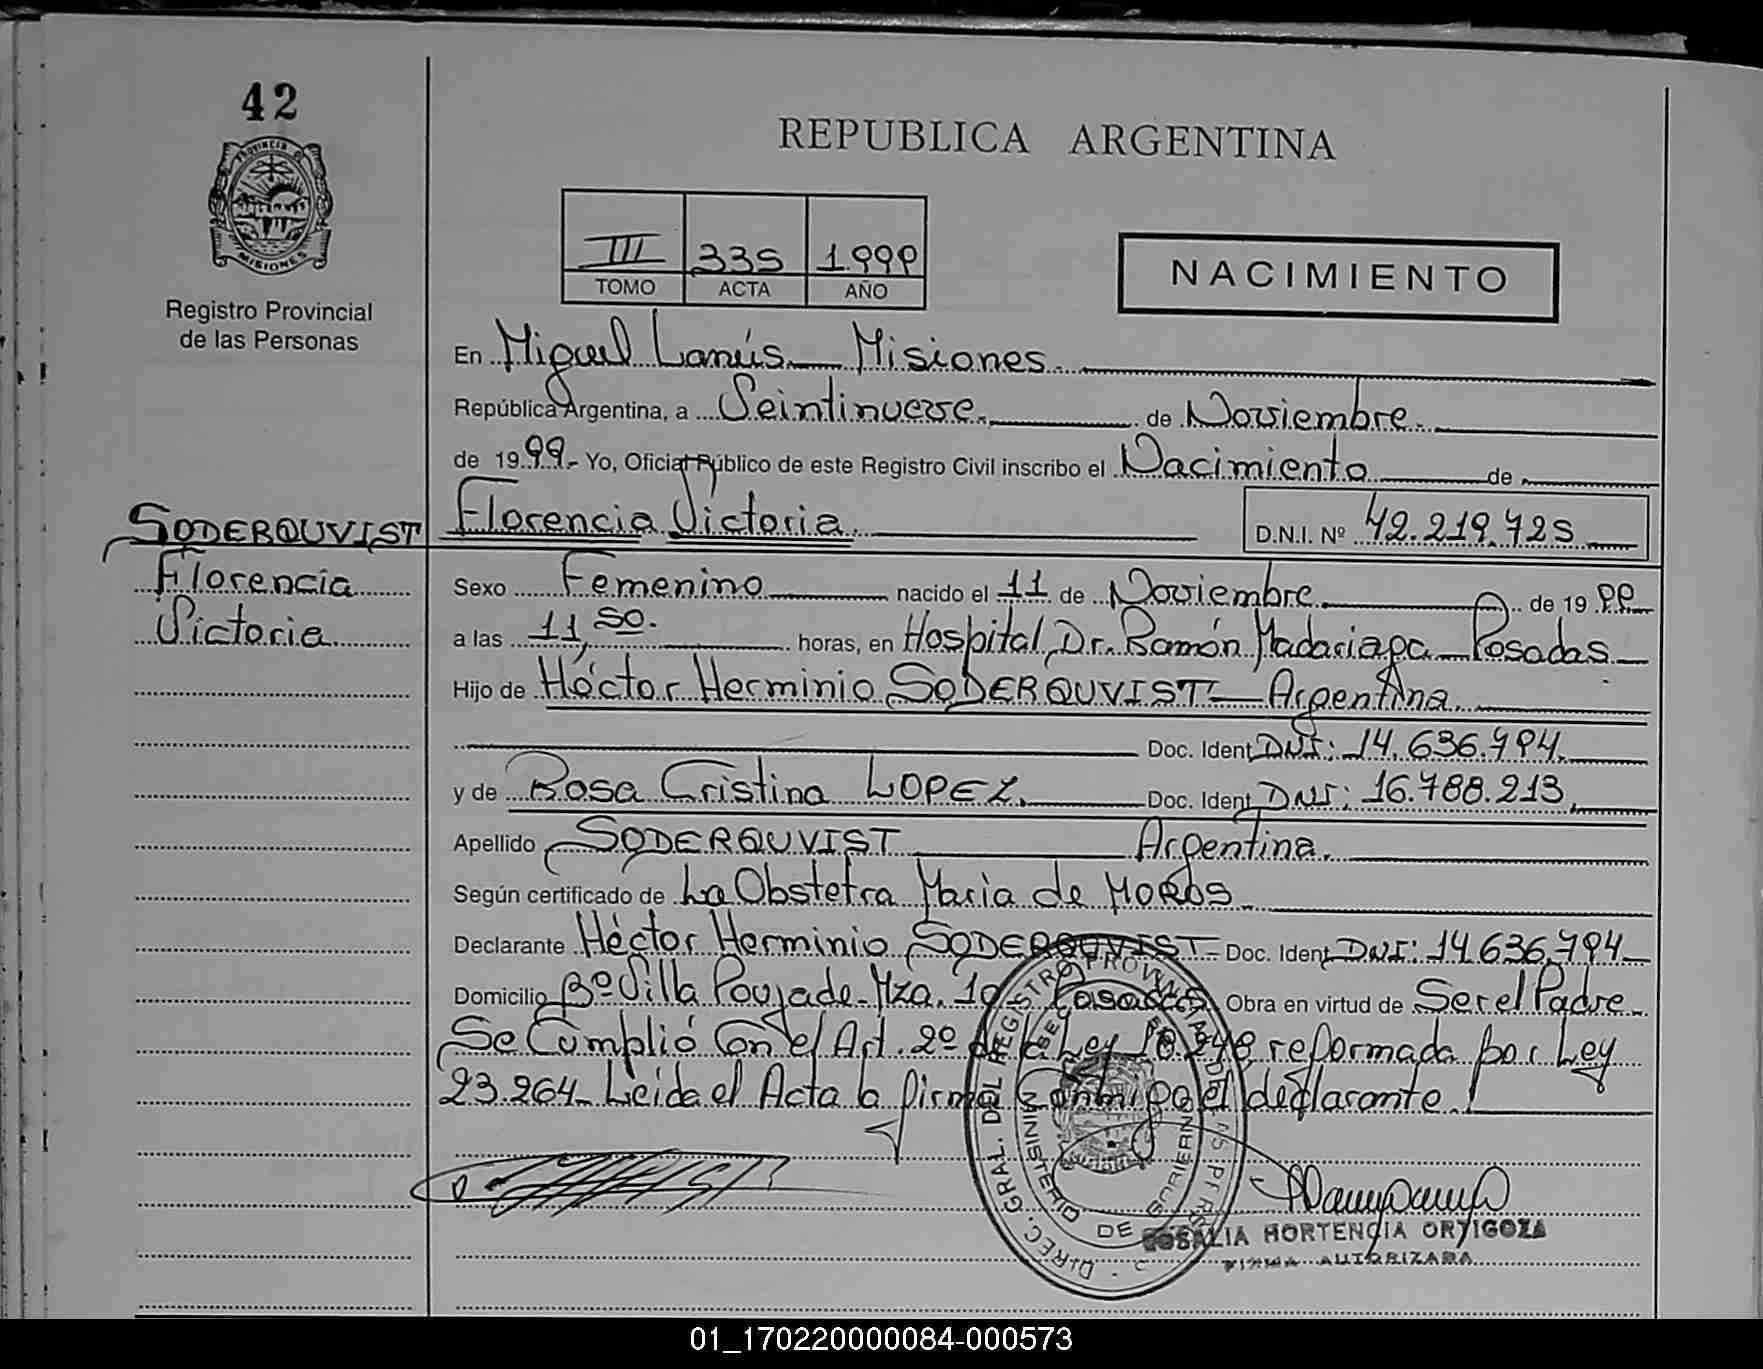 42
REPUBLICA ARGENTINA
PROVINCIA DE
MISIONES
Registro Provincial
de las Personas
III 335 1.999
TOMO ACTA AÑO
NACIMIENTO
En Miguel Lanús - Misiones.
República Argentina, a Veintinueve. de Noviembre.
de 1999.- Yo, Oficial Público de este Registro Civil inscribo el Nacimiento de
SODERQUVIST
Florencia
Victoria
Florencia Victoria. D.N.I. Nº 42.219.725
Sexo Femenino nacido el 11 de Noviembre de 1999
a las 11,50. horas, en Hospital Dr. Ramón Madariaga - Posadas
Hijo de Héctor Herminio SODERQUVIST - Argentina.
Doc. Ident DNI: 14.636.794.
y de Rosa Cristina LOPEZ. Doc. Ident DNI: 16.788.213.
Apellido SODERQUVIST Argentina.
Según certificado de La Obstetra Maria de MOROS
Declarante Héctor Herminio SODERQUVIST - Doc. Ident DNI: 14.636.794
Domicilio Bº Villa Poujade - Mza. 10 - Posadas Obra en virtud de Ser el Padre.
Se Cumplió Con el Art. 2º de la Ley 18.248 reformada por Ley
23.264 - Leida el Acta la firma Conmigo el declarante.
DIREC. GRAL. DEL REGISTRO PROVINCIAL DE LAS PERSONAS
MINISTERIO DE GOBIERNO
ROSALIA HORTENCIA ORTIGOZA
FIRMA AUTORIZADA
01_170220000084-000573